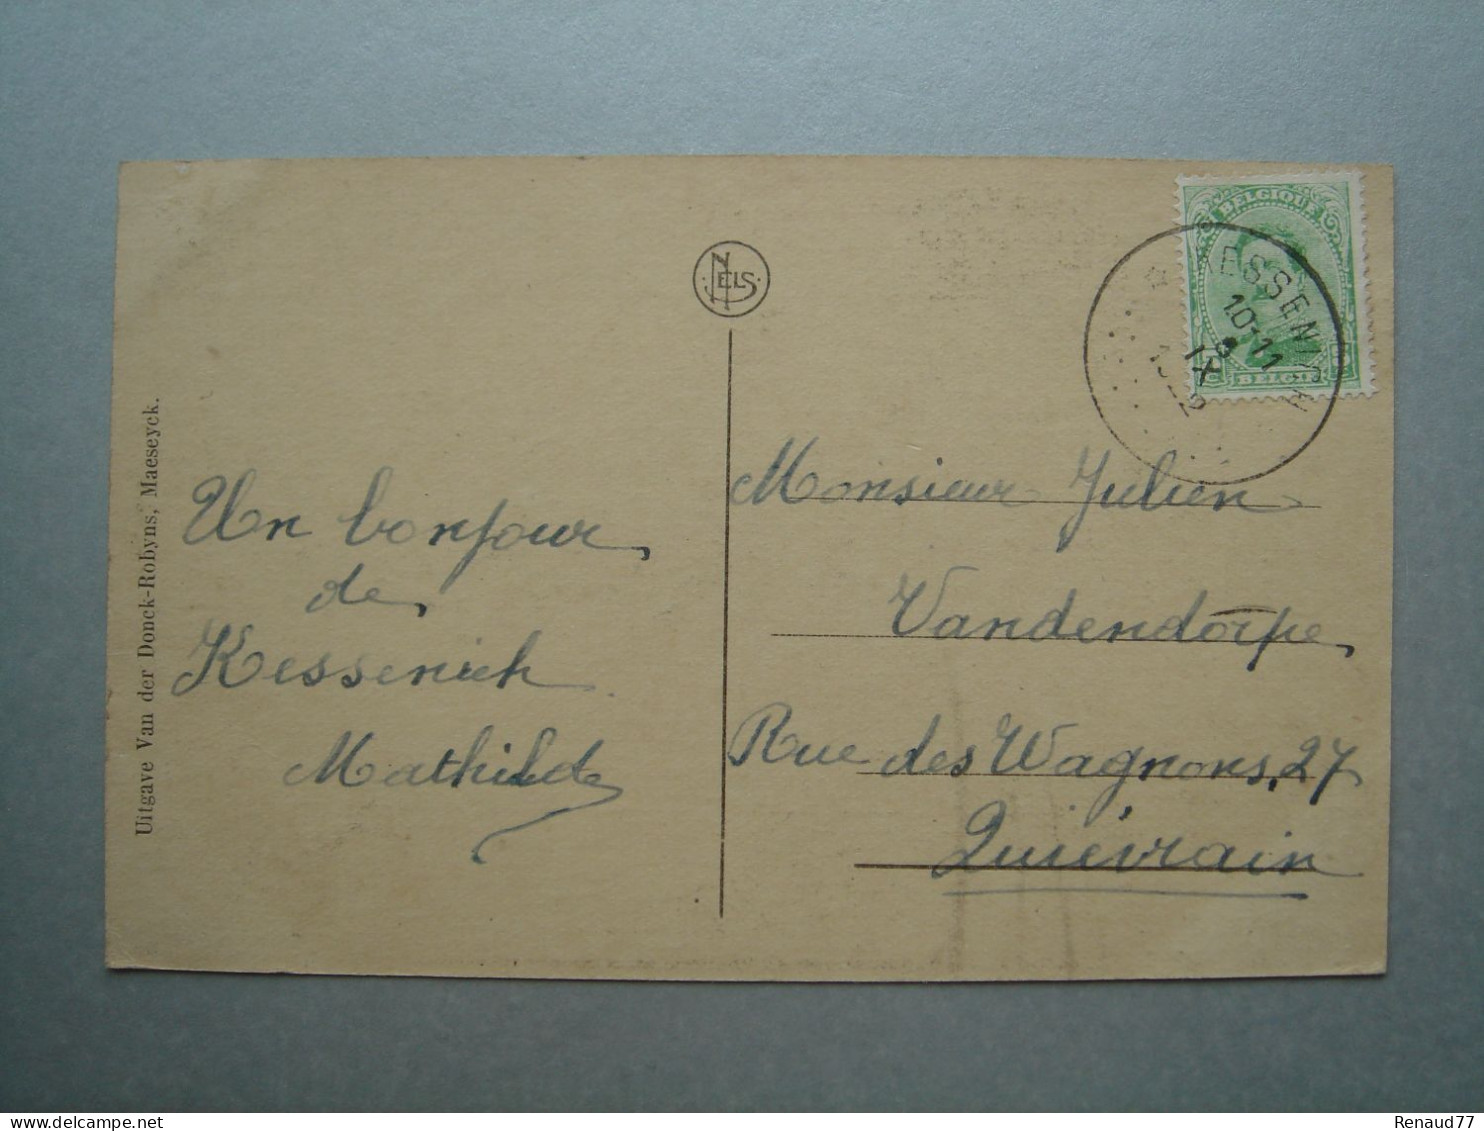 Uitgave Van der Donck-Robyns, Maeseyck.
NELS
BELGIQUE
BELGIE
KESSENICH
10-11
IX
Un bonjour
de
Kessenich
Mathilde
Monsieur Julien
Vandendorpe
Rue des Wagnons, 27
Quiévrain
delcampe.net
Renaud77